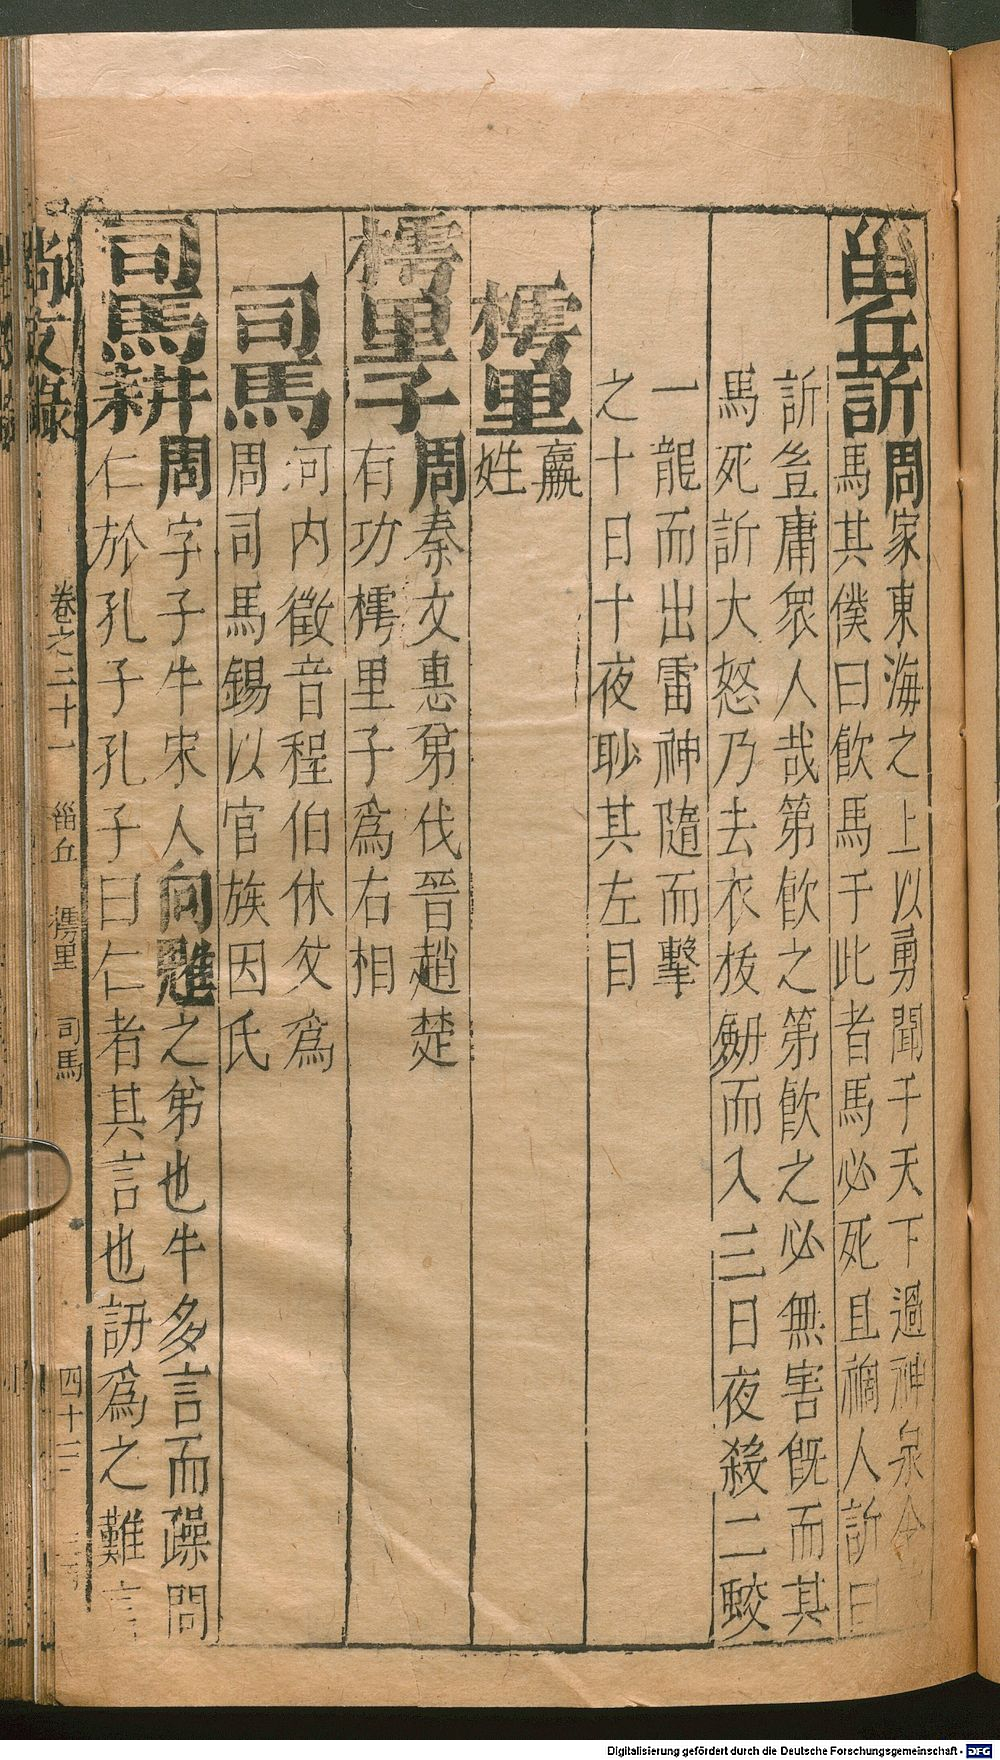 菑丘訢
周家東海之上以勇聞于天下過神泉令
馬其僕曰飲馬于此者馬必死且禍人訢曰
訢豈庸衆人哉第飲之第飲之必無害旣而其
馬死訢大怒乃去衣拔劒而入三日夜殺二蛟
一龍而出雷神隨而擊
之十日十夜眇其左目
樗里
嬴
姓
樗里子
周秦文惠弟伐晉趙楚
有功樗里子爲右相
司馬
河內徵音程伯休父爲
周司馬錫以官族因氏
司馬耕
周字子牛宋人向魋之弟也牛多言而躁問
仁於孔子孔子曰仁者其言也訒爲之難言
尚友錄
卷之二十一
菑丘 樗里 司馬
四十三
Digitalisierung gefördert durch die Deutsche Forschungsgemeinschaft - DFG